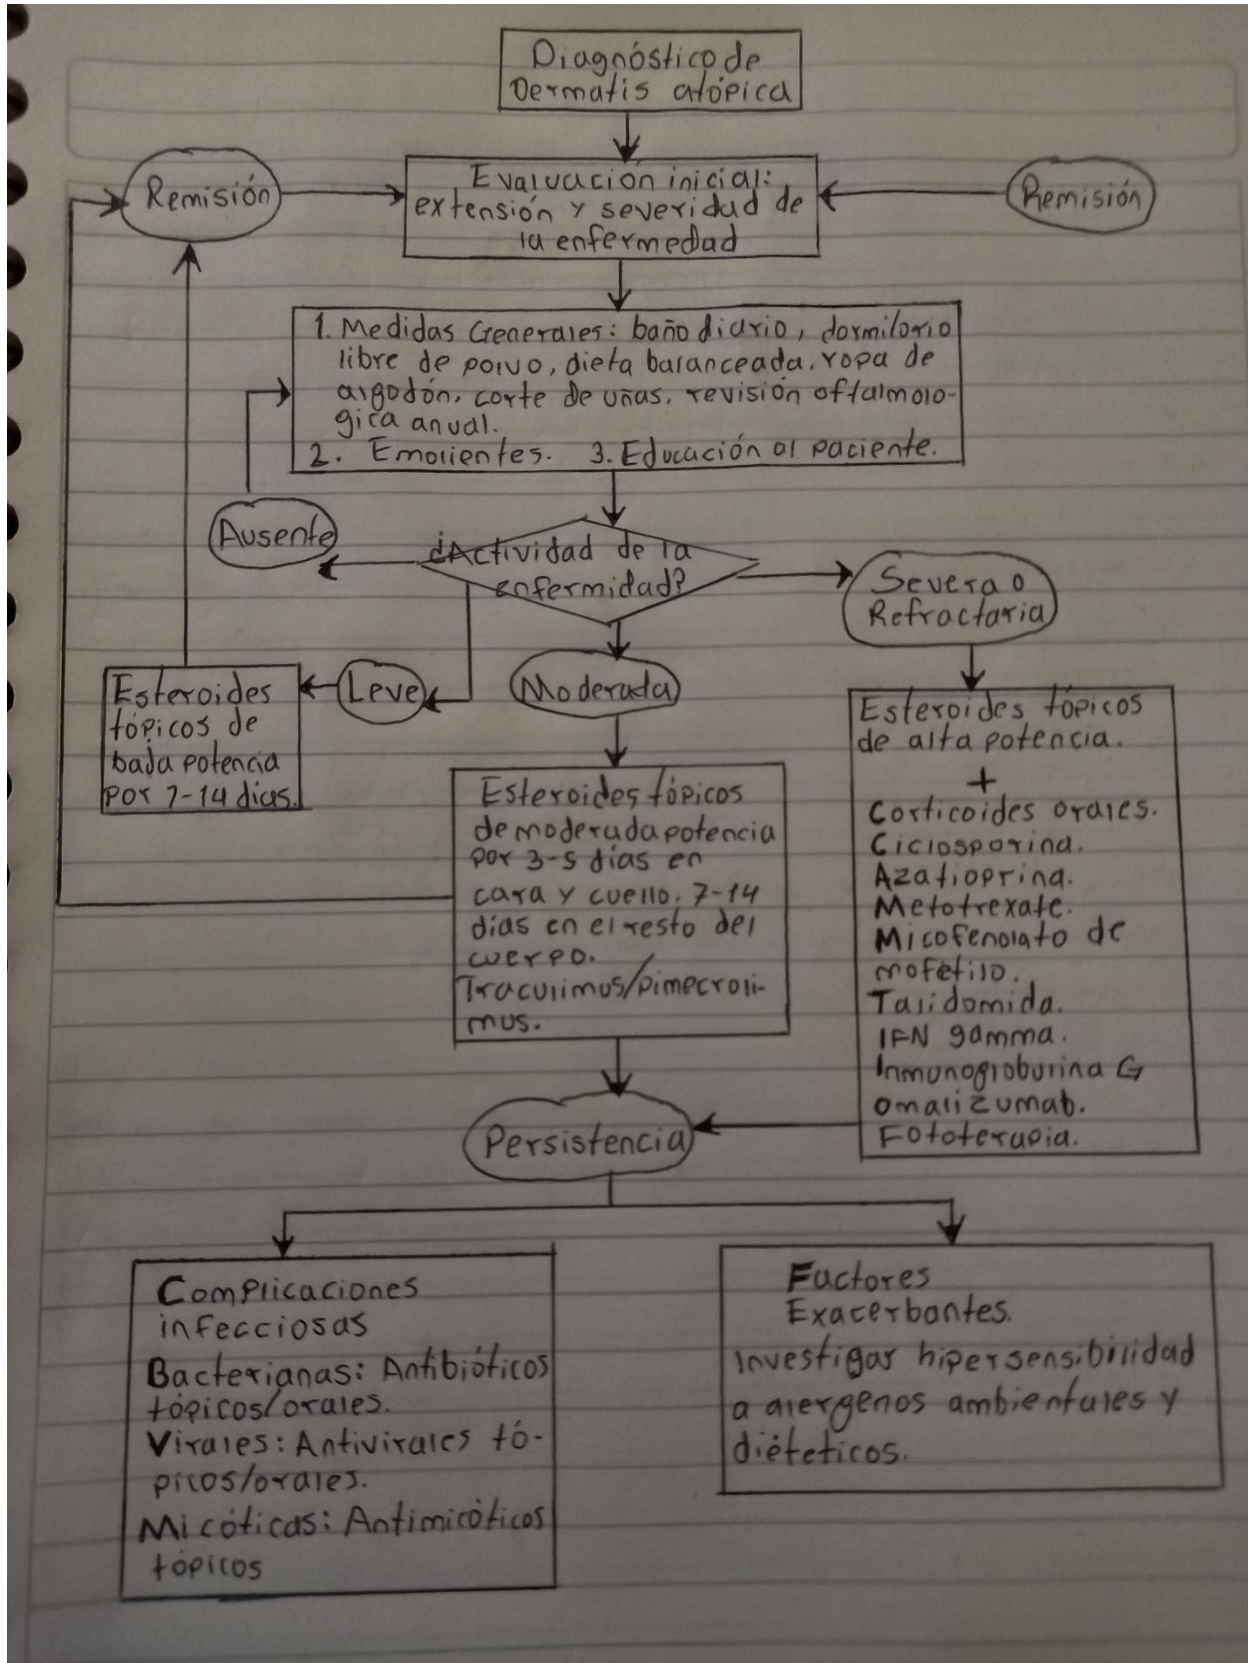 Diagnóstico de
Dermatis atópica
Remisión
Evaluación inicial:
extensión y severidad de
la enfermedad
Remisión
1. Medidas Generales: baño diario, dormitorio
libre de polvo, dieta balanceada, ropa de
algodón, corte de uñas, revisión oftalmolo-
gica anual.
2. Emolientes. 3. Educación al paciente.
Ausente
¿Actividad de la
enfermidad?
Severa o
Refractaria
Leve
Moderada
Esteroides
tópicos de
baja potencia
por 7-14 días.
Esteroides tópicos
de moderada potencia
por 3-5 días en
cara y cuello, 7-14
días en el resto del
cuerpo.
Traculimus/pimecroli-
mus.
Esteroides tópicos
de alta potencia.
+
Corticoides orales.
Ciclosporina.
Azatioprina.
Metotrexate.
Micofenolato de
mofetilo.
Talidomida.
IFN gamma.
Inmunogloburina G
omalizumab.
Fototerapia.
Persistencia
Complicaciones
infecciosas
Bacterianas: Antibióticos
tópicos/orales.
Virales: Antivirales tó-
picos/orales.
Micóticas: Antimicóticos
tópicos
Factores
Exacerbantes.
Investigar hipersensibilidad
a alergenos ambientales y
diéteticos.